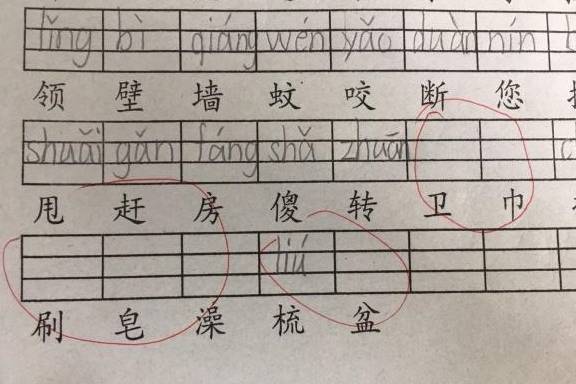 lǐng bì qiáng wén yǎo duàn nín
领 壁 墙 蚊 咬 断 您
shuǎi gǎn fáng shǎ zhuǎn
甩 赶 房 傻 转 卫 巾
liú
刷 皂 澡 梳 盆